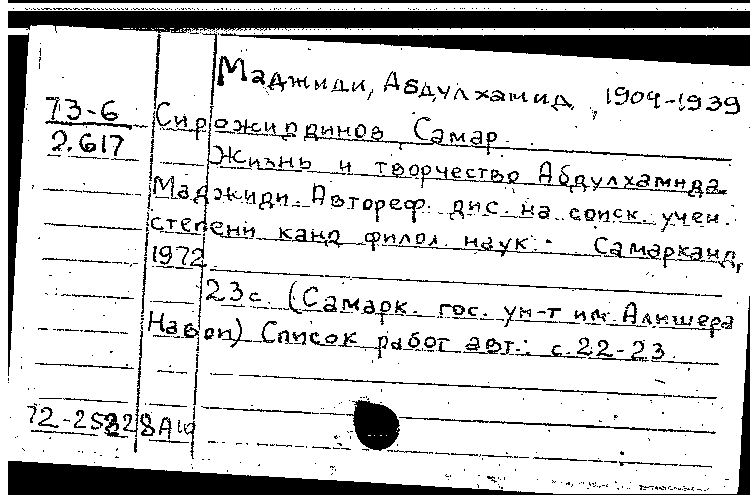 Маджиди, Абдулхамид, 1904-1939
73-6
2.617
Сирожиддинов, Самар.
Жизнь и творчество Абдулхамида
Маджиди. Автореф. дис. на соиск. учен.
степени канд. филол. наук. - Самарканд,
1972
23с. (Самарк. гос. ун-т им. Алишера
Навои) Список работ авт.: с.22-23.
72-25828